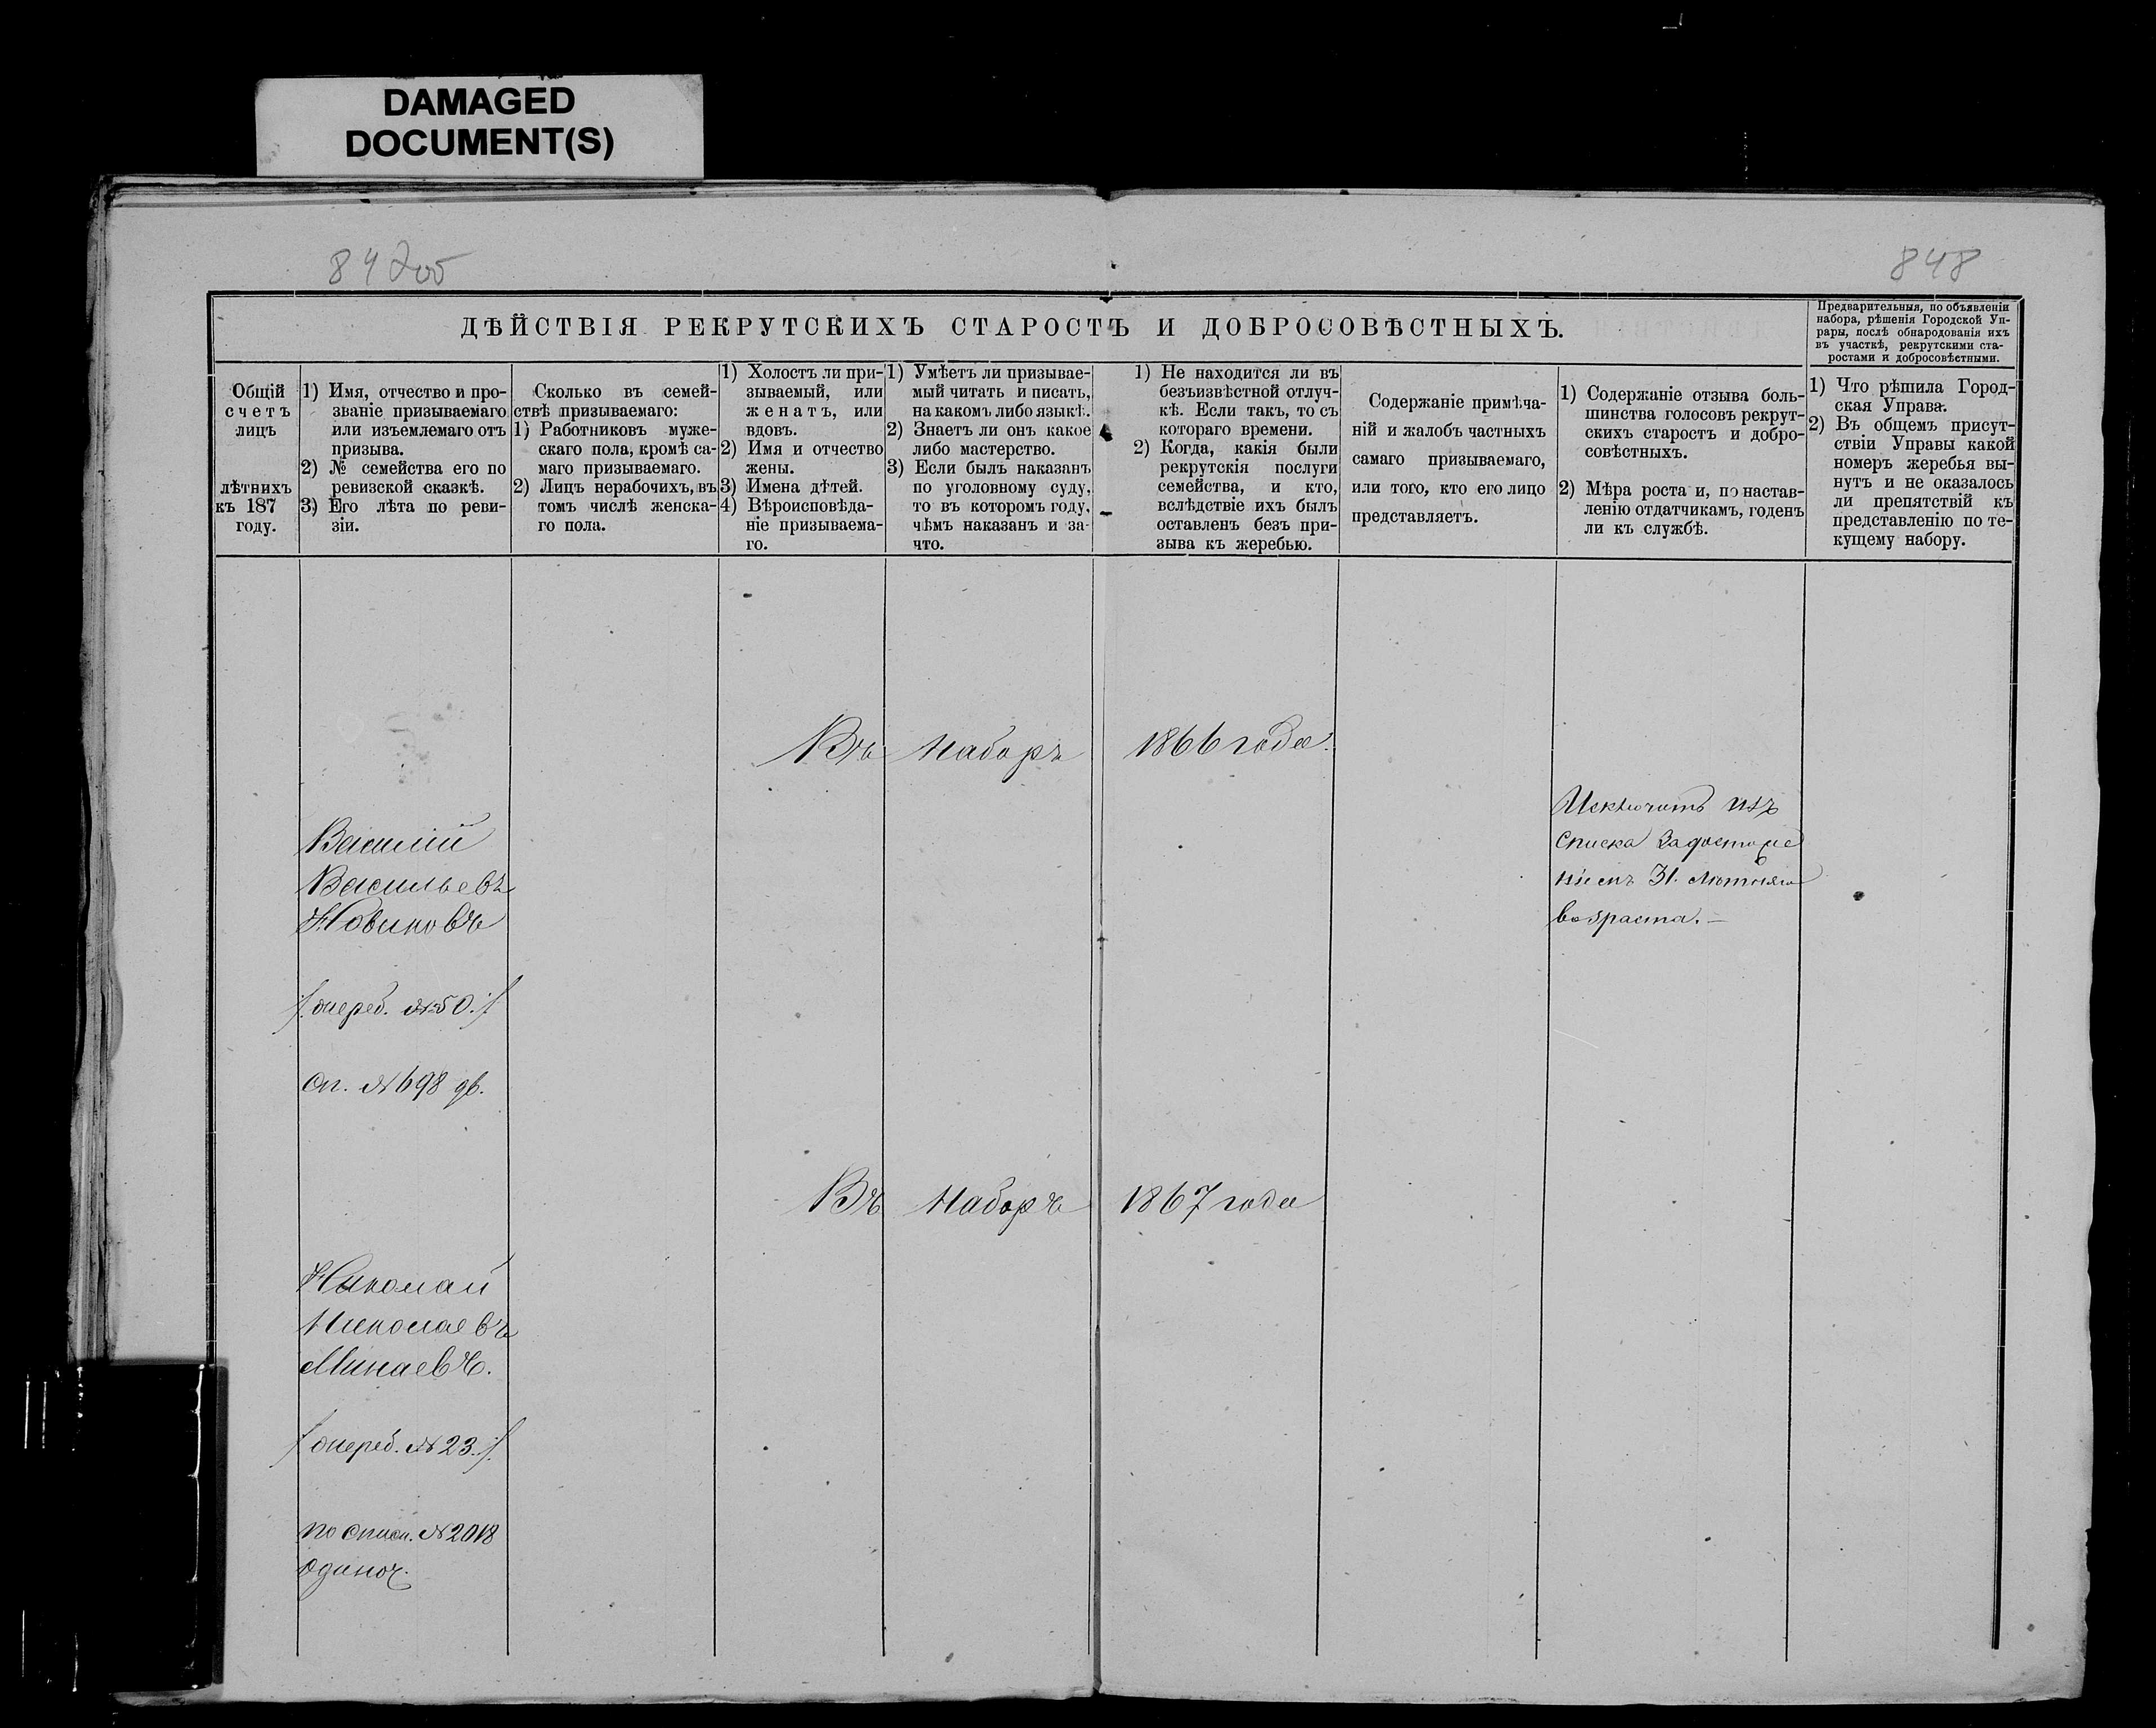 DAMAGED
DOCUMENT(S)
847об
848
ДѢЙСТВІЯ РЕКРУТСКИХЪ СТАРОСТЪ И ДОБРОСОВѢСТНЫХЪ.
Предварительныя, по объявленіи
набора, рѣшенія Городской Уп-
рары, послѣ обнародованія ихъ
въ участкѣ, рекрутскими ста-
ростами и добросовѣстными.
Общій
счетъ
лицъ
лѣтнихъ
къ 187
году.
1) Имя, отчество и про-
званіе призываемаго
или изъемлемаго отъ
призыва.
2) № семейства его по
ревизской сказкѣ.
3) Его лѣта по реви-
зіи.
Сколько въ семей-
ствѣ призываемаго:
1) Работниковъ муже-
скаго пола, кромѣ са-
маго призываемаго.
2) Лицъ нерабочихъ, въ
томъ числѣ женска-
го пола.
1) Холостъ ли при-
зываемый, или
женатъ, или
вдовъ.
2) Имя и отчество
жены.
3) Имена дѣтей.
4) Вѣроисповѣда-
ніе призываема-
го.
1) Умѣетъ ли призывае-
мый читать и писать,
на какомъ либо языкѣ.
2) Знаетъ ли онъ какое
либо мастерство.
3) Если былъ наказанъ
по уголовному суду,
то въ которомъ году,
чѣмъ наказанъ и за-
что.
1) Не находится ли въ
безъизвѣстной отлуч-
кѣ. Если такъ, то съ
котораго времени.
2) Когда, какія были
рекрутскія послуги
семейства, и кто,
вслѣдствіе ихъ былъ
оставленъ безъ при-
зыва къ жеребью.
Содержаніе примѣча-
ній и жалобъ частныхъ
самаго призываемаго,
или того, кто его лицо
представляетъ.
1) Содержаніе отзыва боль-
шинства голосовъ рекрут-
скихъ старостъ и добро-
совѣстныхъ.
2) Мѣра роста и, по настав-
ленію отдатчикамъ, годенъ
ли къ службѣ.
1) Что рѣшила Город-
ская Управа.
2) Въ общемъ присут-
ствіи Управы какой
номеръ жеребья вы-
нутъ и не оказалось
ли препятствій къ
представленію по те-
кущему набору.
Въ Наборъ 1866 года.
Василій
Васильевъ
Новиковъ
/: очеред. №50. :/
Сп. №698 дв.
Исключить изъ
списка за достиже
ніемъ 31. лѣтняго
возраста. —
Въ Наборъ 1867 года
Николай
Николаевъ
Минаевъ.
/: очеред. №23. :/
по списк. №2018
одиноч.